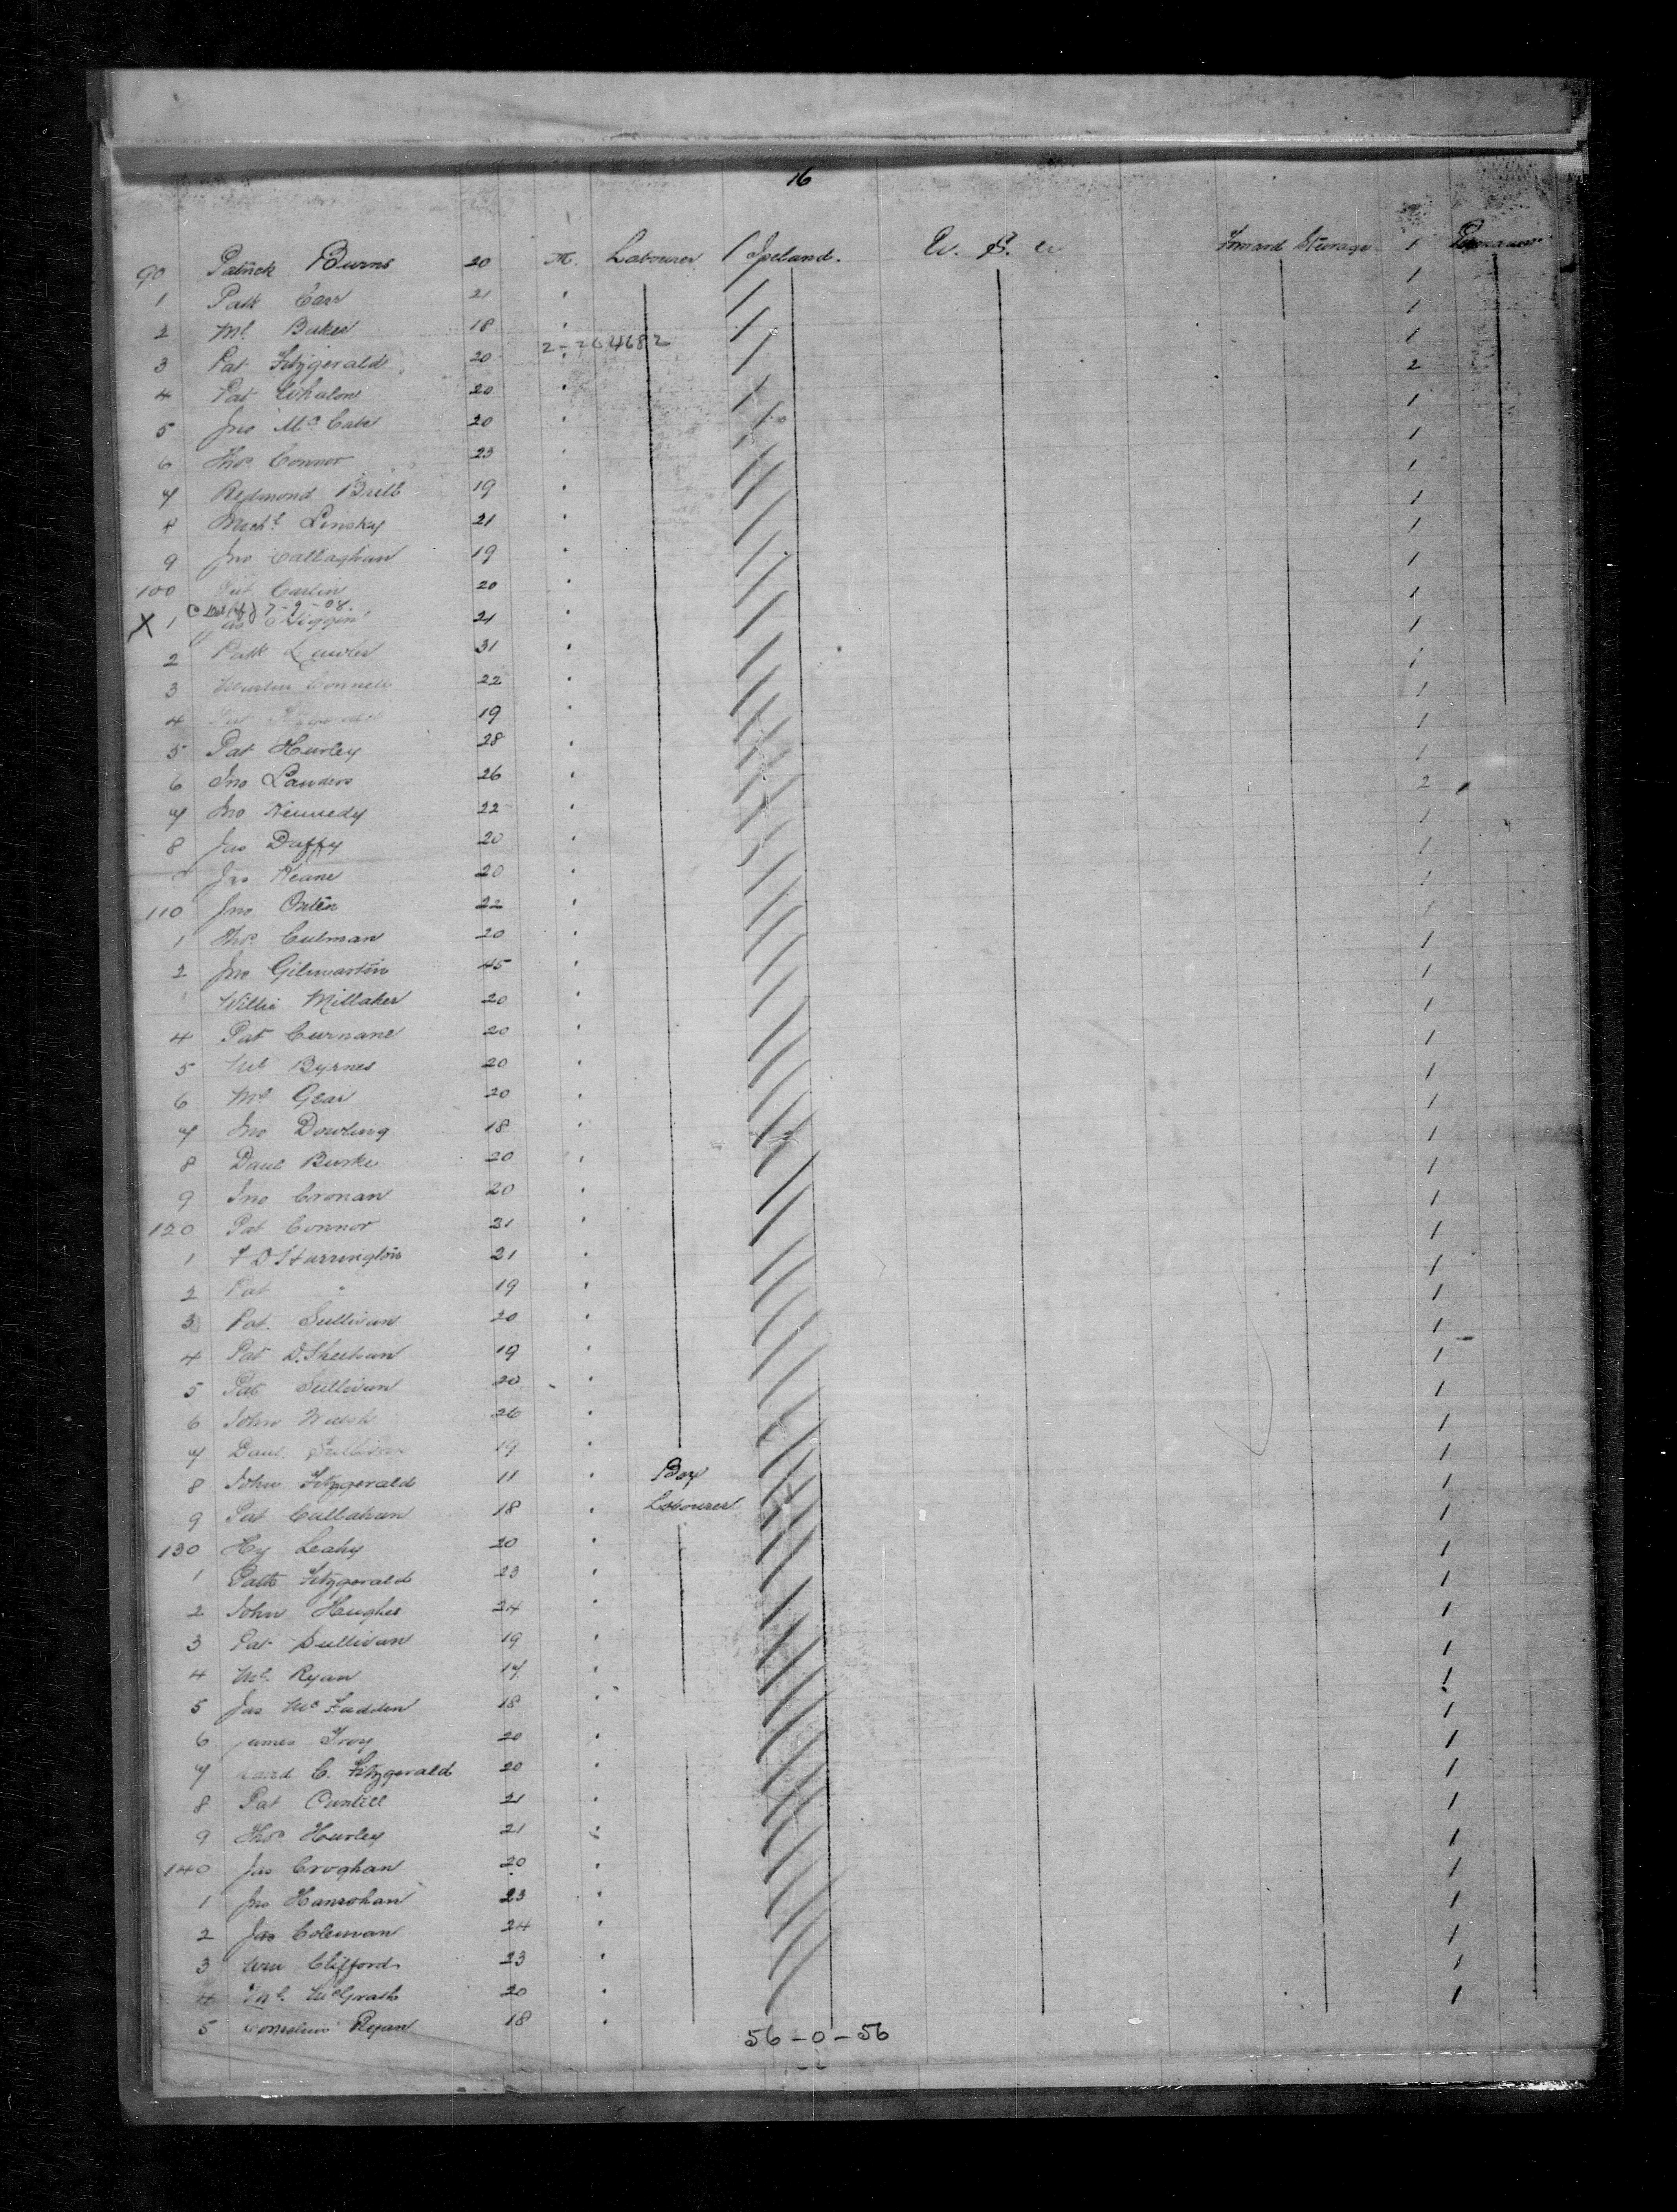 16
90 Patrick Burns 20 M. Labourer Ireland. U. S. Forward Steerage 1
1 Patk Carr 21 " 1
2 Ml Baker 18 " 1
2-264682
3 Pat Fitzgerald 20 " 1
4 Pat Whalen 20 " 2
5 Jno McCabe 20 " 1
6 Thos Connor 23 " 1
7 Redmond Brett 19 " 1
8 Michl Linsky 21 " 1
9 Jno Callaghan 19 " 1
100 Pat Carlin 20 " 1
7-9-08.
X 1 Jas Higgin 21 " 1
2 Patk Lawler 31 " 1
3 Martin Connell 22 " 1
4 19 " 1
5 Pat Hurley 28 " 1
6 Jno Landers 26 " 1
7 Jno Kennedy 22 " 2
8 Jas Duffy 20 " 1
Jas Keane 20 " 1
110 Jno 22 " 1
1 Thos Culman 20 " 1
2 Jno Gilmartin 45 " 1
Willie Millaker 20 " 1
4 Pat Curnane 20 " 1
5 Ml Byrnes 20 " 1
6 Ml Gear 20 " 1
7 Jno Dowling 18 " 1
8 Danl Burke 20 " 1
9 Jno Cronan 20 " 1
120 Pat Connor 21 " 1
1 T D Harrington 21 " 1
2 Pat " 19 " 1
3 Pat. Sullivan 20 " 1
4 Pat D. Sheehan 19 " 1
5 Pat Sullivan 20 " 1
6 John Welsh 26 " 1
7 Danl. Sullivan 19 " 1
8 John Fitzgerald 11 " Boy 1
9 Pat Callahan 18 " Labourer 1
130 Hy Leahy 20 " 1
1 Patk Fitzgerald 23 " 1
2 John Hughes 24 " 1
3 Pat Sullivan 19 " 1
4 Ml. Ryan 17 " 1
5 Jas McFadden 18 " 1
6 James Troy 20 " 1
7 C. Fitzgerald 20 " 1
8 Pat 21 " 1
9 Thos Hurley 21 " 1
140 Jas Croghan 20 " 1
1 Jno Hanrohan 23 " 1
2 Jas Coleman 24 " 1
3 Wm Clifford 23 " 1
4 Ml. McGrath 20 " 1
5 Cornelius Ryan 18 "
56-0-56